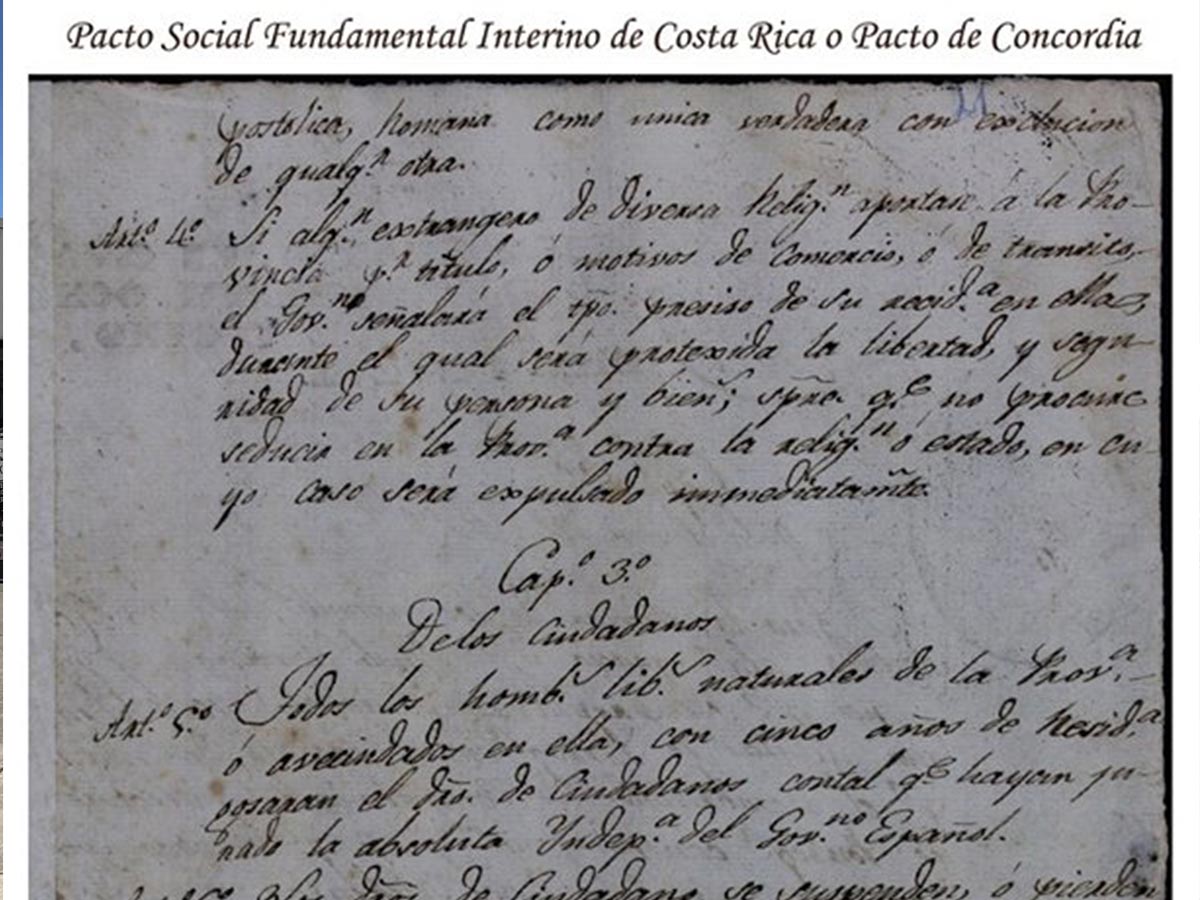 Pacto Social Fundamental Interino de Costa Rica o Pacto de Concordia
21
postolica, Romana como unica verdadera con exclucion
de qualqr. otra.
Art.º 4.º Si alg.n extrangero de diversa Relig.n aportare á la Pro-
vincia p.r titulo, ó motivos de Comercio, o de transito,
el Gov.no señalará el tpo. presiso de su recid.a en ella,
durante el qual será protexida la libertad, y segu-
ridad de su persona y bien.s; spre. q.e no procure
seducir en la Prov.a contra la relig.n o estado, en cu-
yo caso será expulsado immediatam̃te.
Cap.º 3.º
Delos Ciudadanos
Art.º 5.º Todos los homb.s lib.s naturales de la Prov.a
ó avecindados en ella, con cinco años de Resid.a
gosaran el dro. de Ciudadanos contal q.e hayan ju-
rado la absoluta Yndep.a del Gov.no Español.
Los dros. de Ciudadano se suspenden, ó pierden